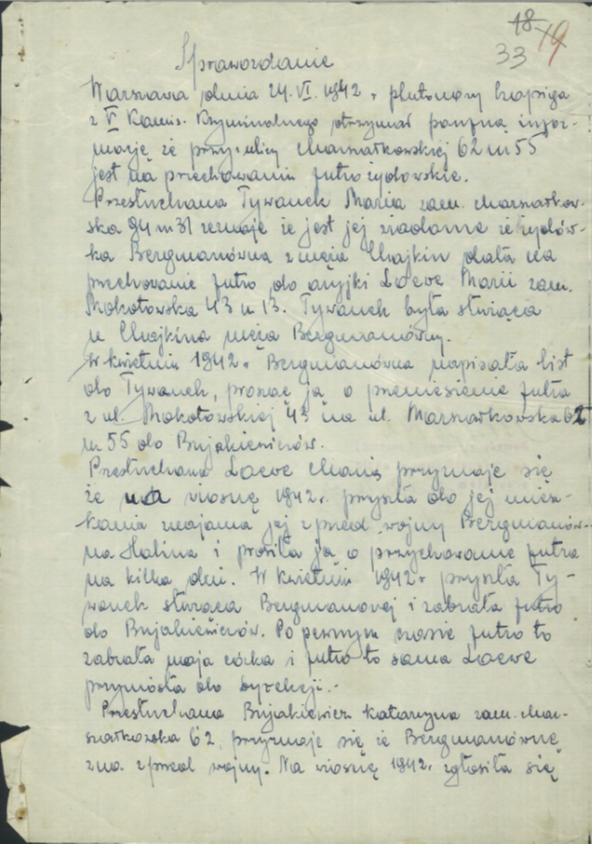 18 19
33
Sprawozdanie
Warszawa dnia 24.VI.1942 r plutonowy
z V Komis. Kryminalnego otrzymał poufną infor-
mację że przy ulicy Marszałkowskiej 62 m 55
jest na przechowaniu futro żydowskie.
Przesłuchana Tywanek Maria zam. Marszałkow-
ska 94 m 31 zeznaje że jest jej wiadome że żydów-
ka Bergmanówna z męża Chajkin dała na
przechowanie futro do aryjki Loewe Marii zam.
Mokotowska 43 m 13. Tywanek była służąca
u Chajkina męża Bergmanówny.
W kwietniu 1942 r Bergmanówna napisała list
do Tywanek, prosząc ją o przeniesienie futra
z ul. Mokotowskiej 43 na ul. Marszałkowska 62
m 55 do Bujakiewiczów.
Przesłuchana Loewe Maria przyznaje się
że na wiosnę 1942 r. przyszła do jej miesz-
kania znajoma jej z przed wojny Bergmanów-
na Halina i prosiła ją o przechowanie futra
na kilka dni. W kwietniu 1942 r przyszła Ty-
wanek służąca Bergmanowej i zabrała futro
do Bujakiewiczów. Po pewnym czasie futro to
zabrała moja córka i futro to sama Loewe
przyniosła do Dyrekcji.-
Przesłuchana Bujakiewicz Katarzyna zam. Mar-
szałkowska 62, przyznaje się że Bergmanównę
zna z przed wojny. Na wiosnę 1942 r. zgłosiła się